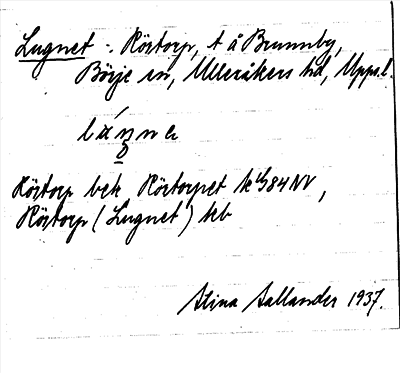 Lugnet - Röstorp, t å Brunnby,
Börje sn, Ulleråkers hd, Upps. l.
Röstorp bek Röstorpet 84 NV,
Röstorp (Lugnet) kb
Stina Sallander 1937.